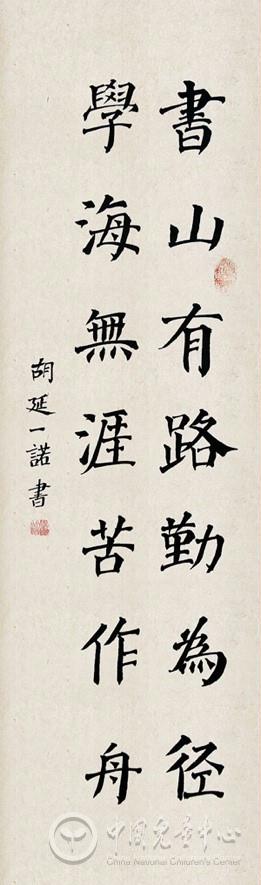 書山有路勤為径
學海無涯苦作舟
胡延一諾書
中国儿童中心
China National Children's Center